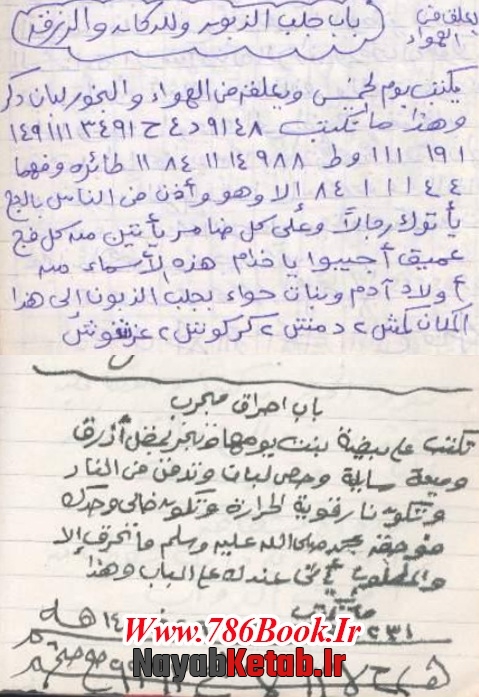 باب جلب الزبون وللدكانه والرزقه
يعلق في الهواء
يكتب يوم الخميس ويعلق في الهواء والبخور لبان ذكر
وهذا ما تكتب ٩١٤٨ د ٤ ح ١٤٩١١١٣٤٩١
١٩١ ١١١ وط ١٤٩٨٨ ١١ ٨٤ ١١ طائره وفهما
٤٤ ١١١١ ٨٤ إلا وهو وأذن في الناس بالحج
يأتوك رجالاً وعلى كل ضامر يأتين من كل فج
عميق أجيبوا يا خدام هذه الأسماء من
أولاد آدم وبنات حواء بجلب الزبون إلى هذا
المكان
باب احراق مجرب
تكتب على بيضة بنت يومها وتبخر بمقل أزرق
وميعة سايلة وحص لبان وتدفن في النار
وتكون نار قوية الحرارة وتكون خالي وحدك
محمد صلى الله عليه وسلم ما تحرق إلا
والمطلوب عندك على الباب وهذا
ما تكتب
www.786Book.Ir
NayabKetab.Ir